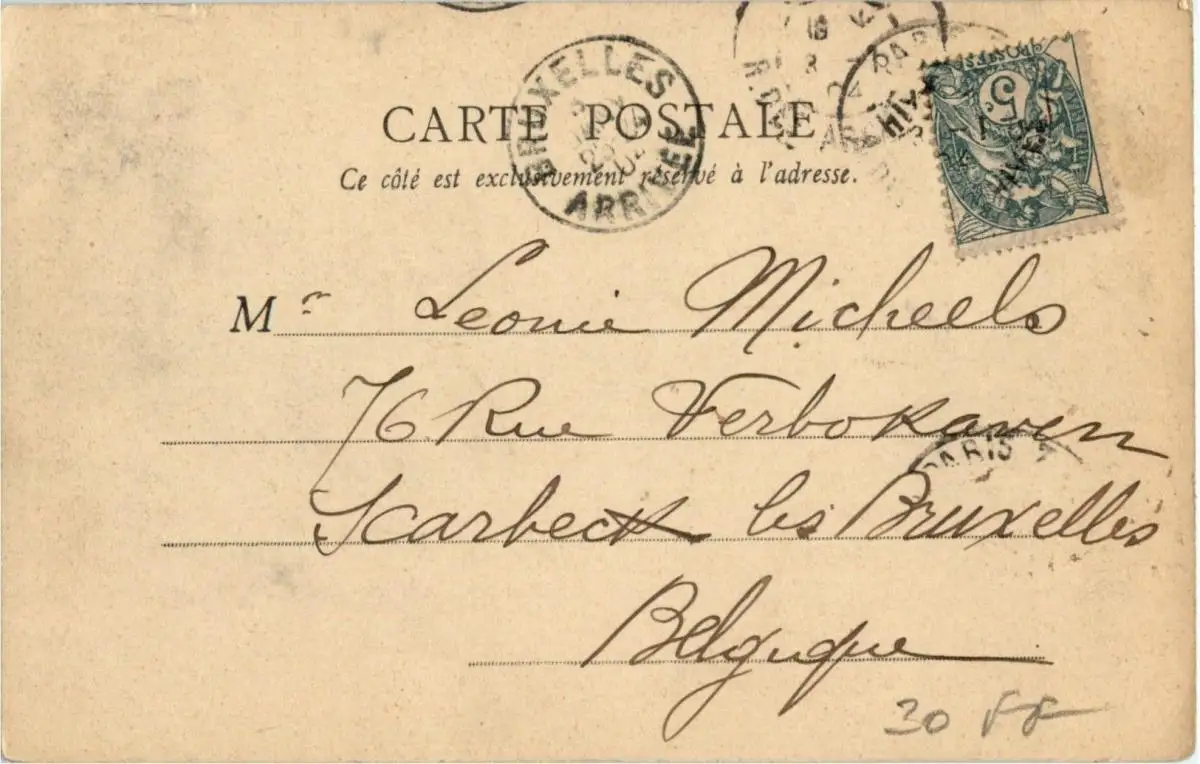 CARTE POSTALE
Ce côté est exclusivement réservé à l'adresse.
BRUXELLES
ARRIVÉE
PARIS
5c
POSTES
Mr Leonie Micheels
76 Rue Verbokaven
Scarbeck les Bruxelles
PARIS
Belgique
30 FF